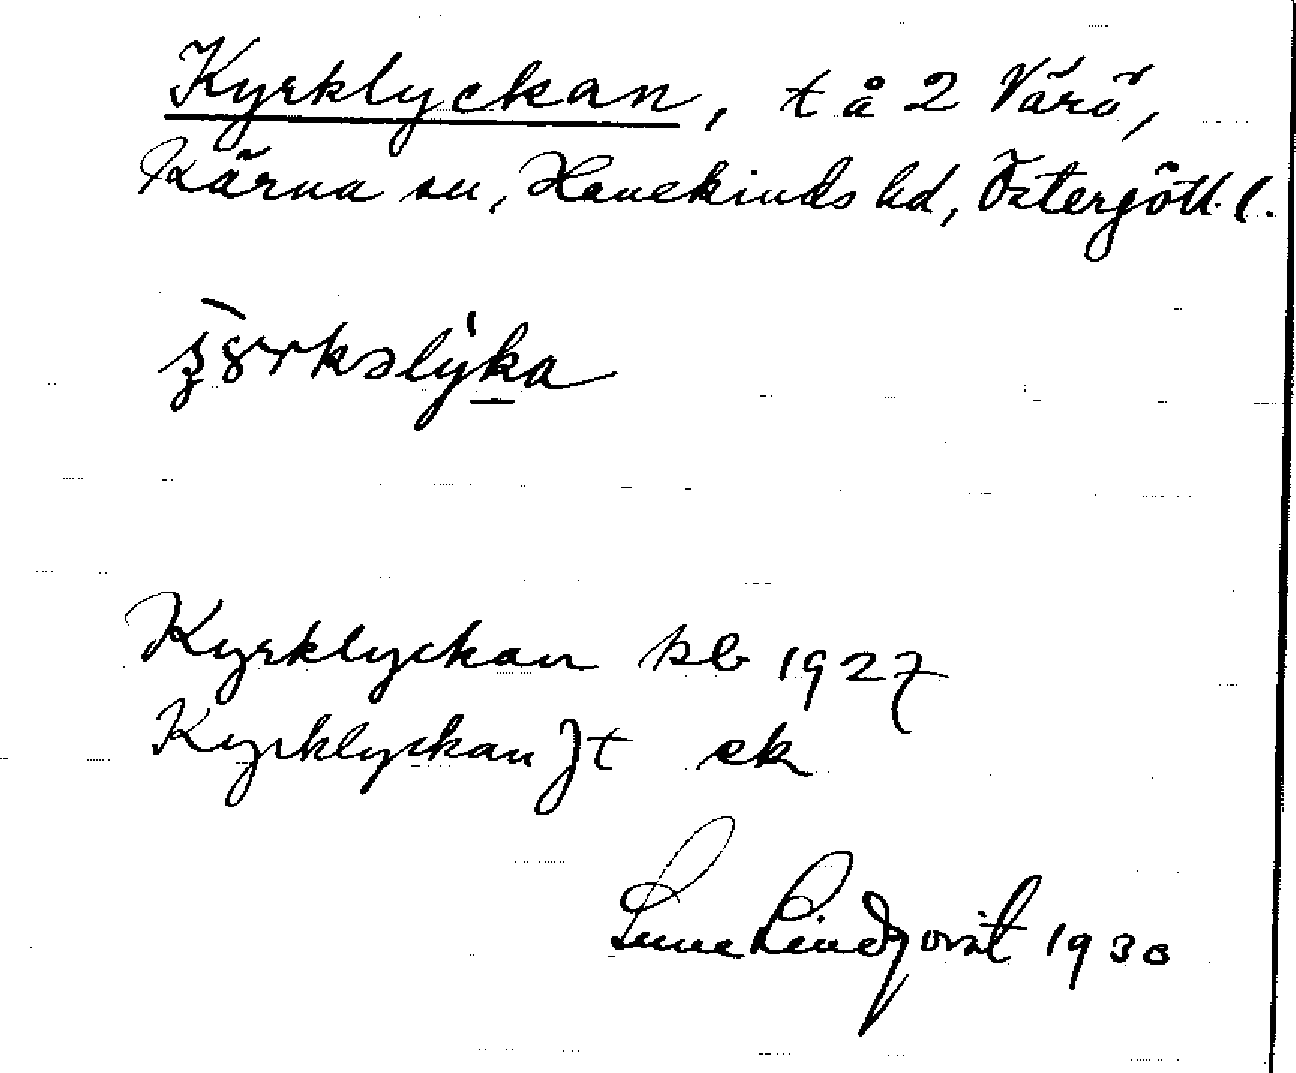 Kyrklyckan, t å 2 Värö,
Kärna sn, Hanekinds hd, Östergötl. l.
Kyrklyckan kb 1927
Kyrklyckan jt ek
Sune Lindqvist 1930